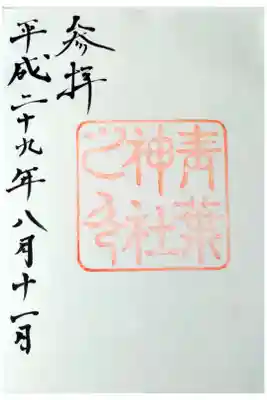 青葉
神社
之印
参拝
平成二十九年八月十一日